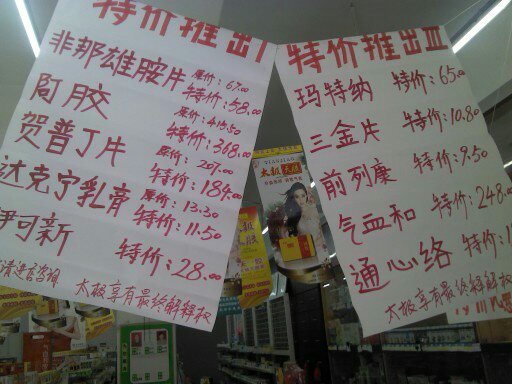 特价推出I
非那雄胺片 原价：67.00
特价：58.00
阿胶 原价：419.50
特价：368.00
贺普丁片 原价：207.00
特价：184.00
达克宁乳膏 原价：13.30
特价：11.50
伊可新 特价：28.00
太极享有最终解释权
特价推出III
玛特纳 特价：65.00
三金片 特价：10.80
前列康 特价：9.50
气血和 特价：248.00
通心络 特价：
太极享有最终解释权
太极天胶